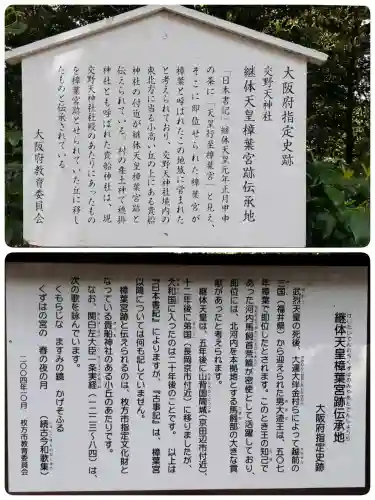 大阪府指定史跡
継体天皇樟葉宮跡伝承地
交野天神社
「日本書記」継体天皇元年正月甲申
の条に「天皇行至樟葉宮」と見え、
そこに即位せられた樟葉宮が
樟葉と呼ばれたこの地域に営まれた
と考えられており、交野天神社境内の
東北方に当る小高い丘の上にある貴船
神社の付近が継体天皇樟葉宮跡と
伝えられている。村の産土神で穂掛
神社とも呼ばれた貴船神社は、現
交野天神社社殿のあたりにあったもの
を樟葉宮跡とせられていた丘に移し
たものと伝承されている
大阪府教育委員会
継体天皇樟葉宮跡伝承地
大阪府指定史跡
武烈天皇の死後、大連大伴金村らによって越前の
三国（福井県）から迎えられた男大迹王は、五〇七
年樟葉で即位したとされます。このとき王の知己で
あった河内馬飼首荒籠が密使として活躍しており、
即位には、北河内を本拠地とする馬飼部の大きな貢
献があったと考えられます。
継体天皇は、五年後に山背国筒城（京田辺市付近）、
十二年後に弟国（長岡京市付近）に移りましたが、
大和国に入ったのは二十年後のことです。 以上は
『日本書紀』によりますが、『古事記』は、樟葉宮
以降については何も記していません。
樟葉宮跡と伝えられるのは、枚方市指定文化財と
なっている貴船神社のある小丘のあたりです。
なお、関白左大臣一条実経（一二二三〜八四）は、
次の歌を詠んでいます。
くもらじな ますみの鏡 かげそふる
くずはの宮の 春の夜の月 （続古今和歌集）
二〇〇四年一〇月 枚方市教育委員会